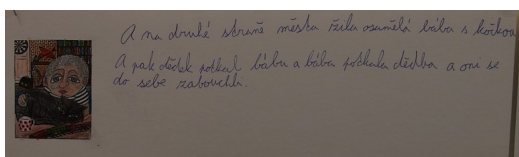 A na druhé straně města žila osamělá bába s kočkou
A pak dědek potkal bábu a bába potkala dědka a oni se
do sebe zabouchli.